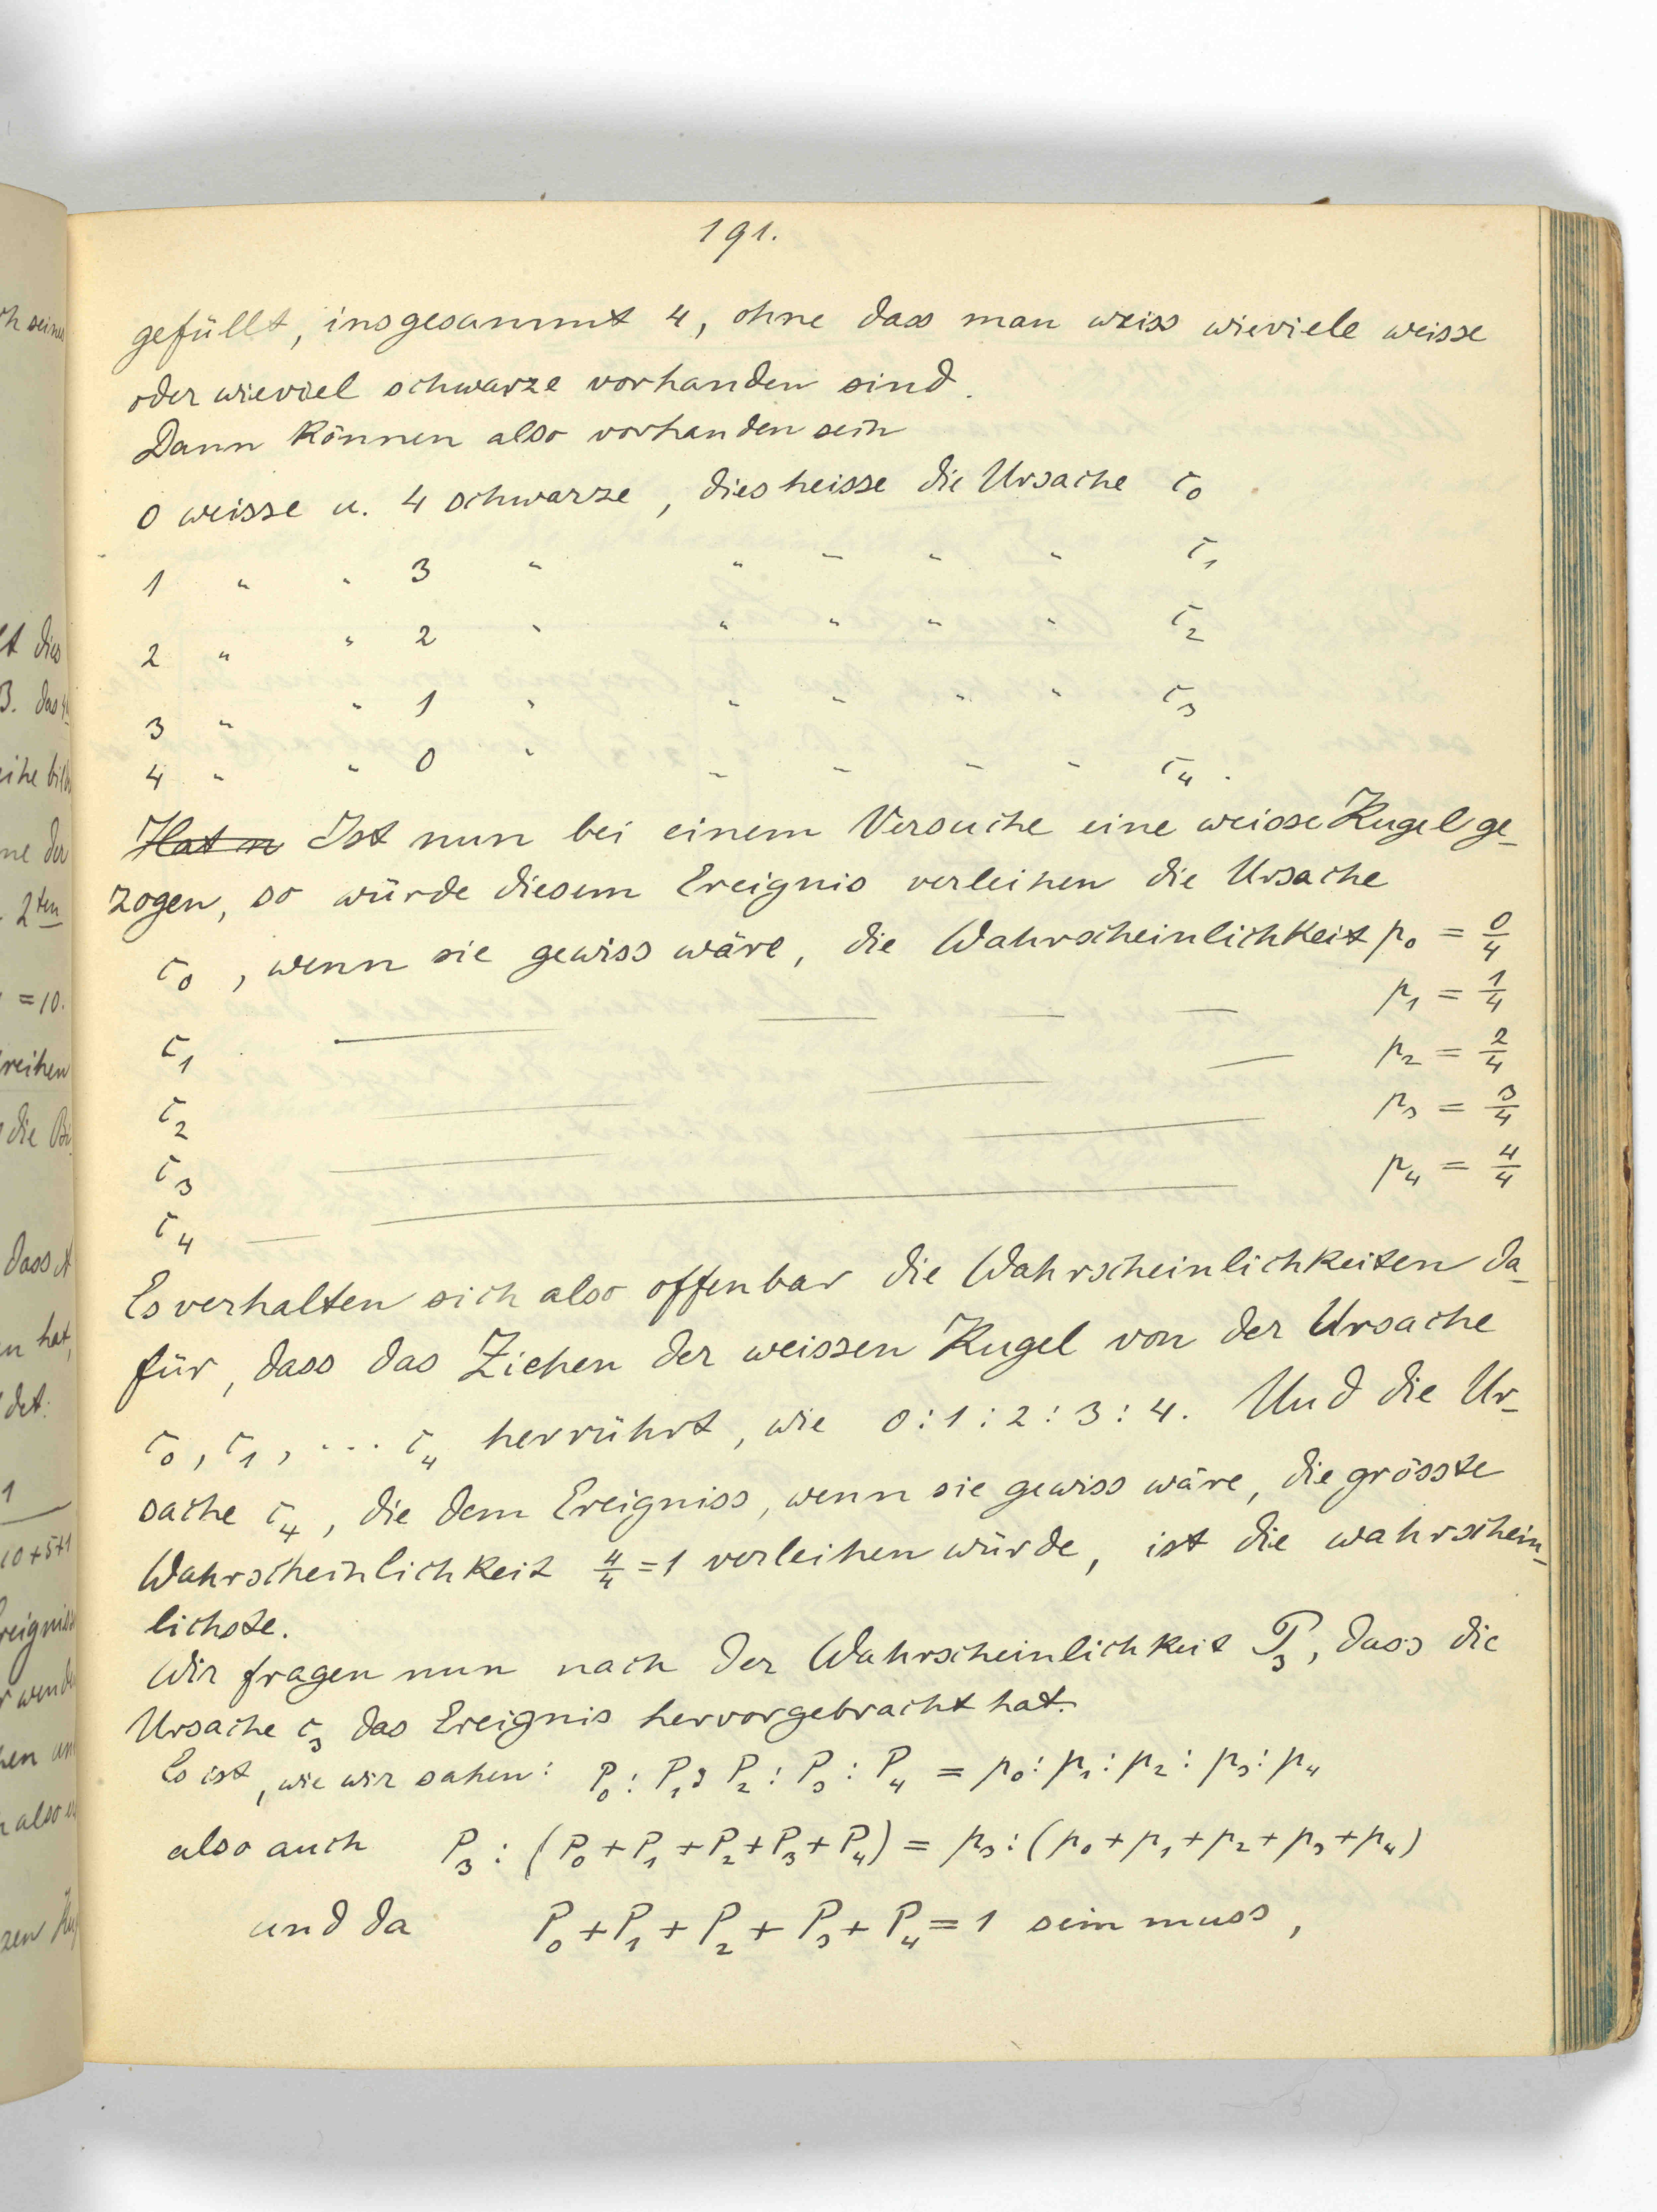 191.
gefüllt, insgesammt 4, ohne dass man weiss wieviele weisse
oder wieviel schwarze vorhanden sind.
Dann können also vorhanden sein
0 weisse u. 4 schwarze, dies heisse die Ursache c₀
1 " " 3 " " " " " c₁
2 " " 2 " " " " " c₂
3 " " 1 " " " " " c₃
4 " " 0 " " " " " c₄.
Hat m Ist nun bei einem Versuche eine weisse Kugel ge-
zogen, so würde diesem Ereignis verleihen die Ursache
c₀, wenn sie gewiss wäre, die Wahrscheinlichkeit p₀ = 0/4
c₁ — — — — p₁ = 1/4
c₂ — — — p₂ = 2/4
c₃ — — p₃ = 3/4
c₄ — — p₄ = 4/4
Es verhalten sich also offenbar die Wahrscheinlichkeiten da-
für, dass das Ziehen der weissen Kugel von der Ursache
c₀, c₁, ... c₄ herrührt, wie 0:1:2:3:4. Und die Ur-
sache c₄, die dem Ereigniss, wenn sie gewiss wäre, die grösste
Wahrscheinlichkeit 4/4 = 1 verleihen würde, ist die wahrschein-
lichste.
Wir fragen nun nach der Wahrscheinlichkeit P₃, dass die
Ursache c₃ das Ereignis hervorgebracht hat.
Es ist, wie wir sahen: P₀ : P₁ : P₂ : P₃ : P₄ = p₀ : p₁ : p₂ : p₃ : p₄
also auch P₃ : (P₀ + P₁ + P₂ + P₃ + P₄) = p₃ : (p₀ + p₁ + p₂ + p₃ + p₄)
und da P₀ + P₁ + P₂ + P₃ + P₄ = 1 sein muss,